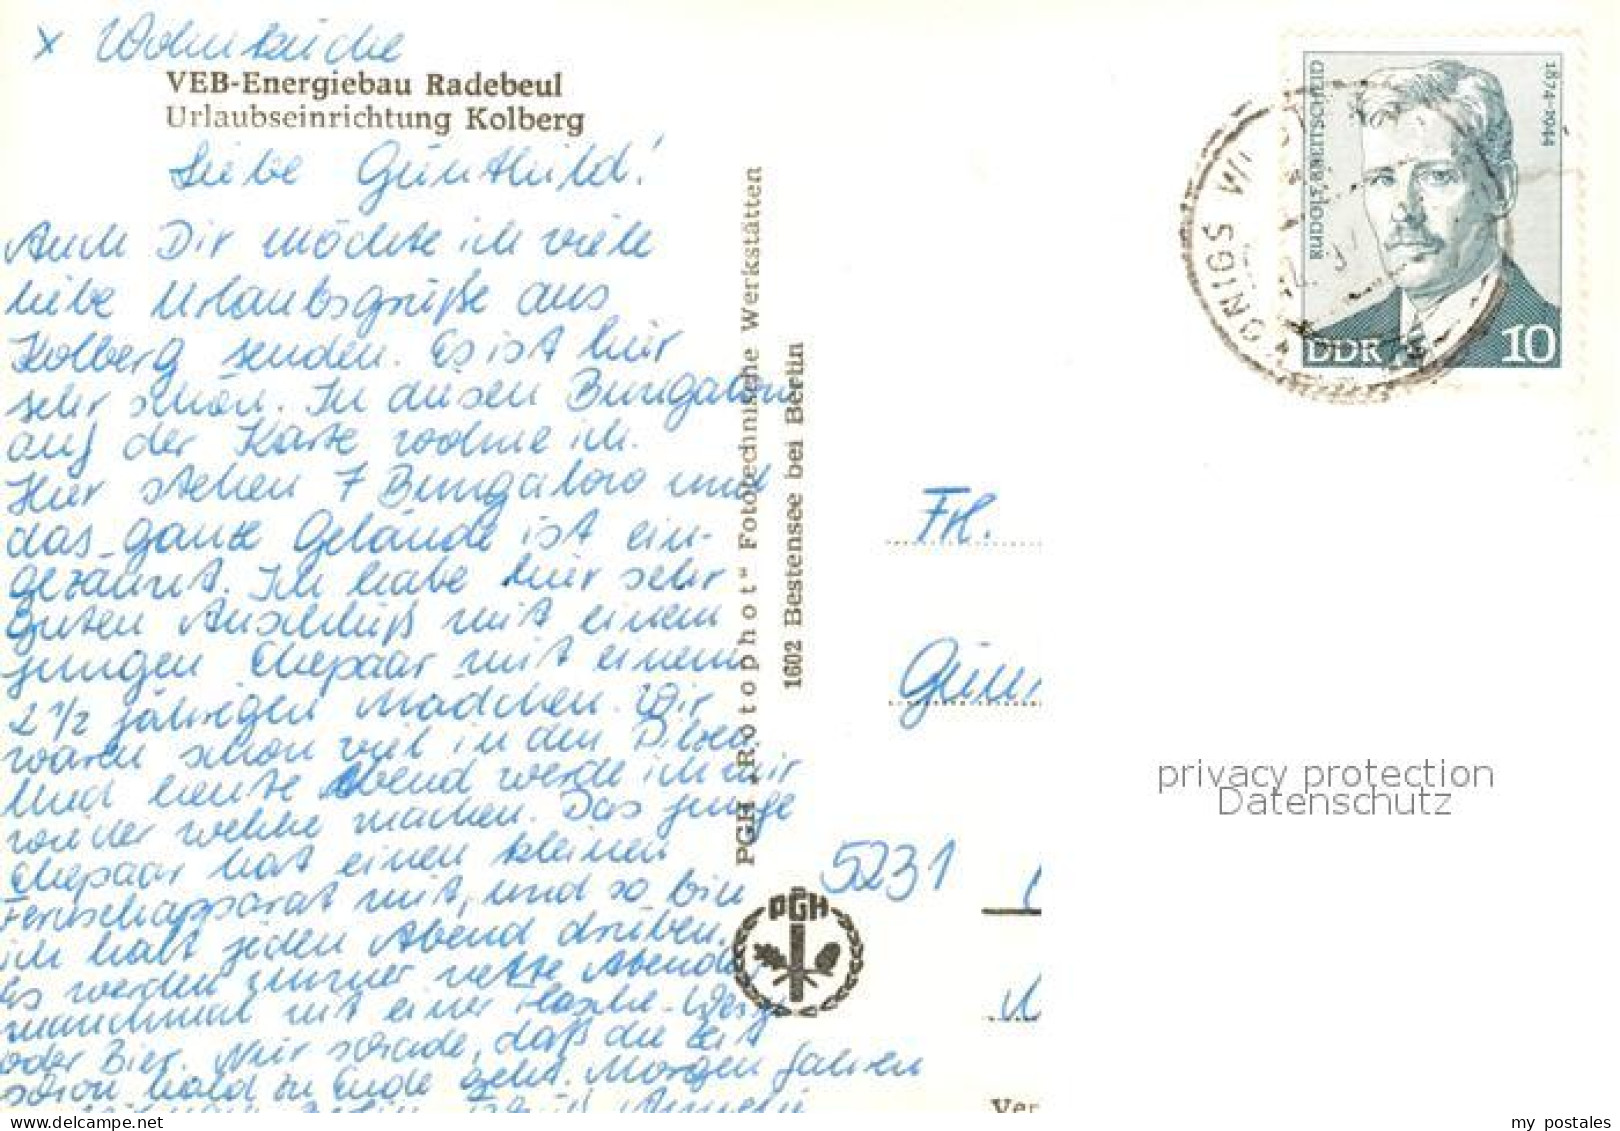 x Wohnküche
VEB-Energiebau Radebeul
Urlaubseinrichtung Kolberg
Liebe Günthild!
Auch Dir möchte ich viele
liebe Urlaubsgrüße aus
Kolberg senden. Es ist hier
sehr schön. In diesen Bungalow
auf der Karte wohne ich.
Hier stehen 7 Bungalow und
das ganze Gelände ist ein-
gezäunt. Ich habe hier sehr
guten Anschluß mit einem
jungen Ehepaar mit einem
2 1/2 jährigen Mädchen. Wir
waren schon viel in den
Und heute Abend werde ich mir
wieder welche machen. Das junge
Ehepaar hat einen kleinen
Fernsehapparat mit, und so bin
ich halt jeden Abend drüben.
Es werden immer nette Abende,
manchmal mit einer Flasche
oder Bier. Nur schade, daß die Zeit
schon bald zu Ende geht. Morgen fahren
PGH „Rotophot“ Fototechnische Werkstätten
1602 Bestensee bei Berlin
PGH
RUDOLF BREITSCHEID
1874-1944
DDR 10
ONIGS WU
Frl.
Gün
5231
Ver
privacy protection
Datenschutz
my postales